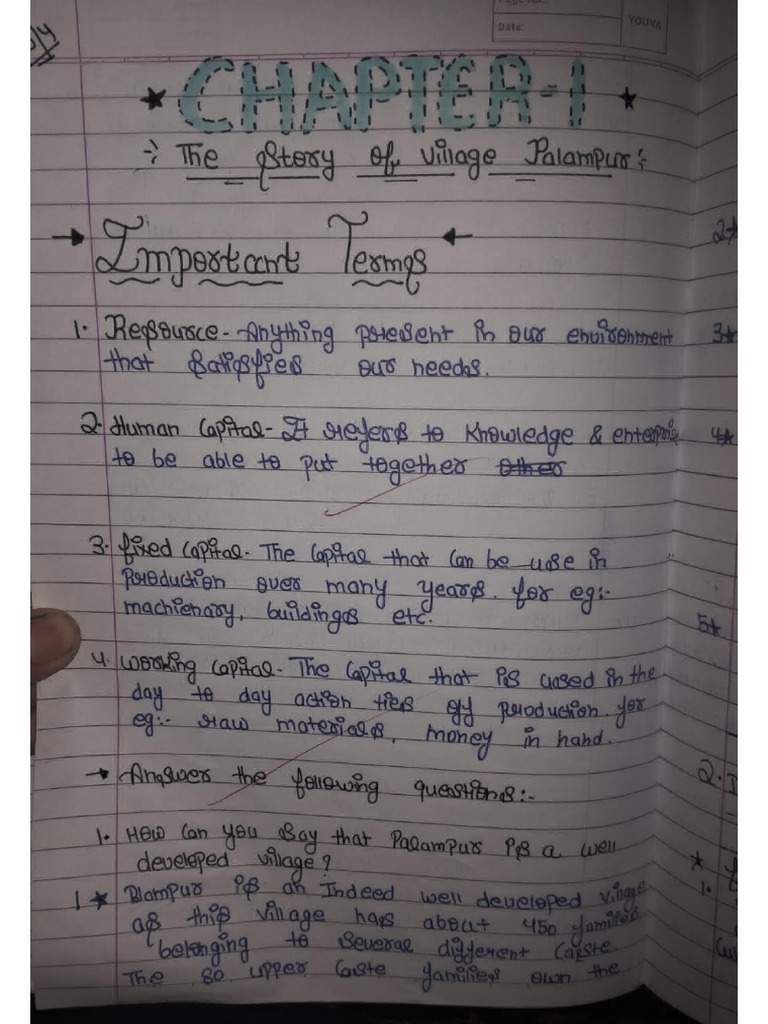 Date:
YOUVA
CHAPTER-1
The Story of Village Palampur
Important Terms
1. Resource - Anything present in our environment
that satisfies our needs.
2. Human Capital - It refers to knowledge & enterpris
to be able to put together other
3. fixed capital - The Capital that can be use in
production over many years. for eg:-
machienary, buildings etc.
4. working capital - The Capital that is used in the
day to day action ties off production. for
eg:- raw materials, money in hand.
→ Answer the following questions:-
1. How can you say that Palampur is a well
developed village?
1 ★ Plampur is an Indeed well developed village
as this village has about 450 families
belonging to several different caste.
The 80 upper caste families own the
2★
3★
4★
5★
2. I
★
1.